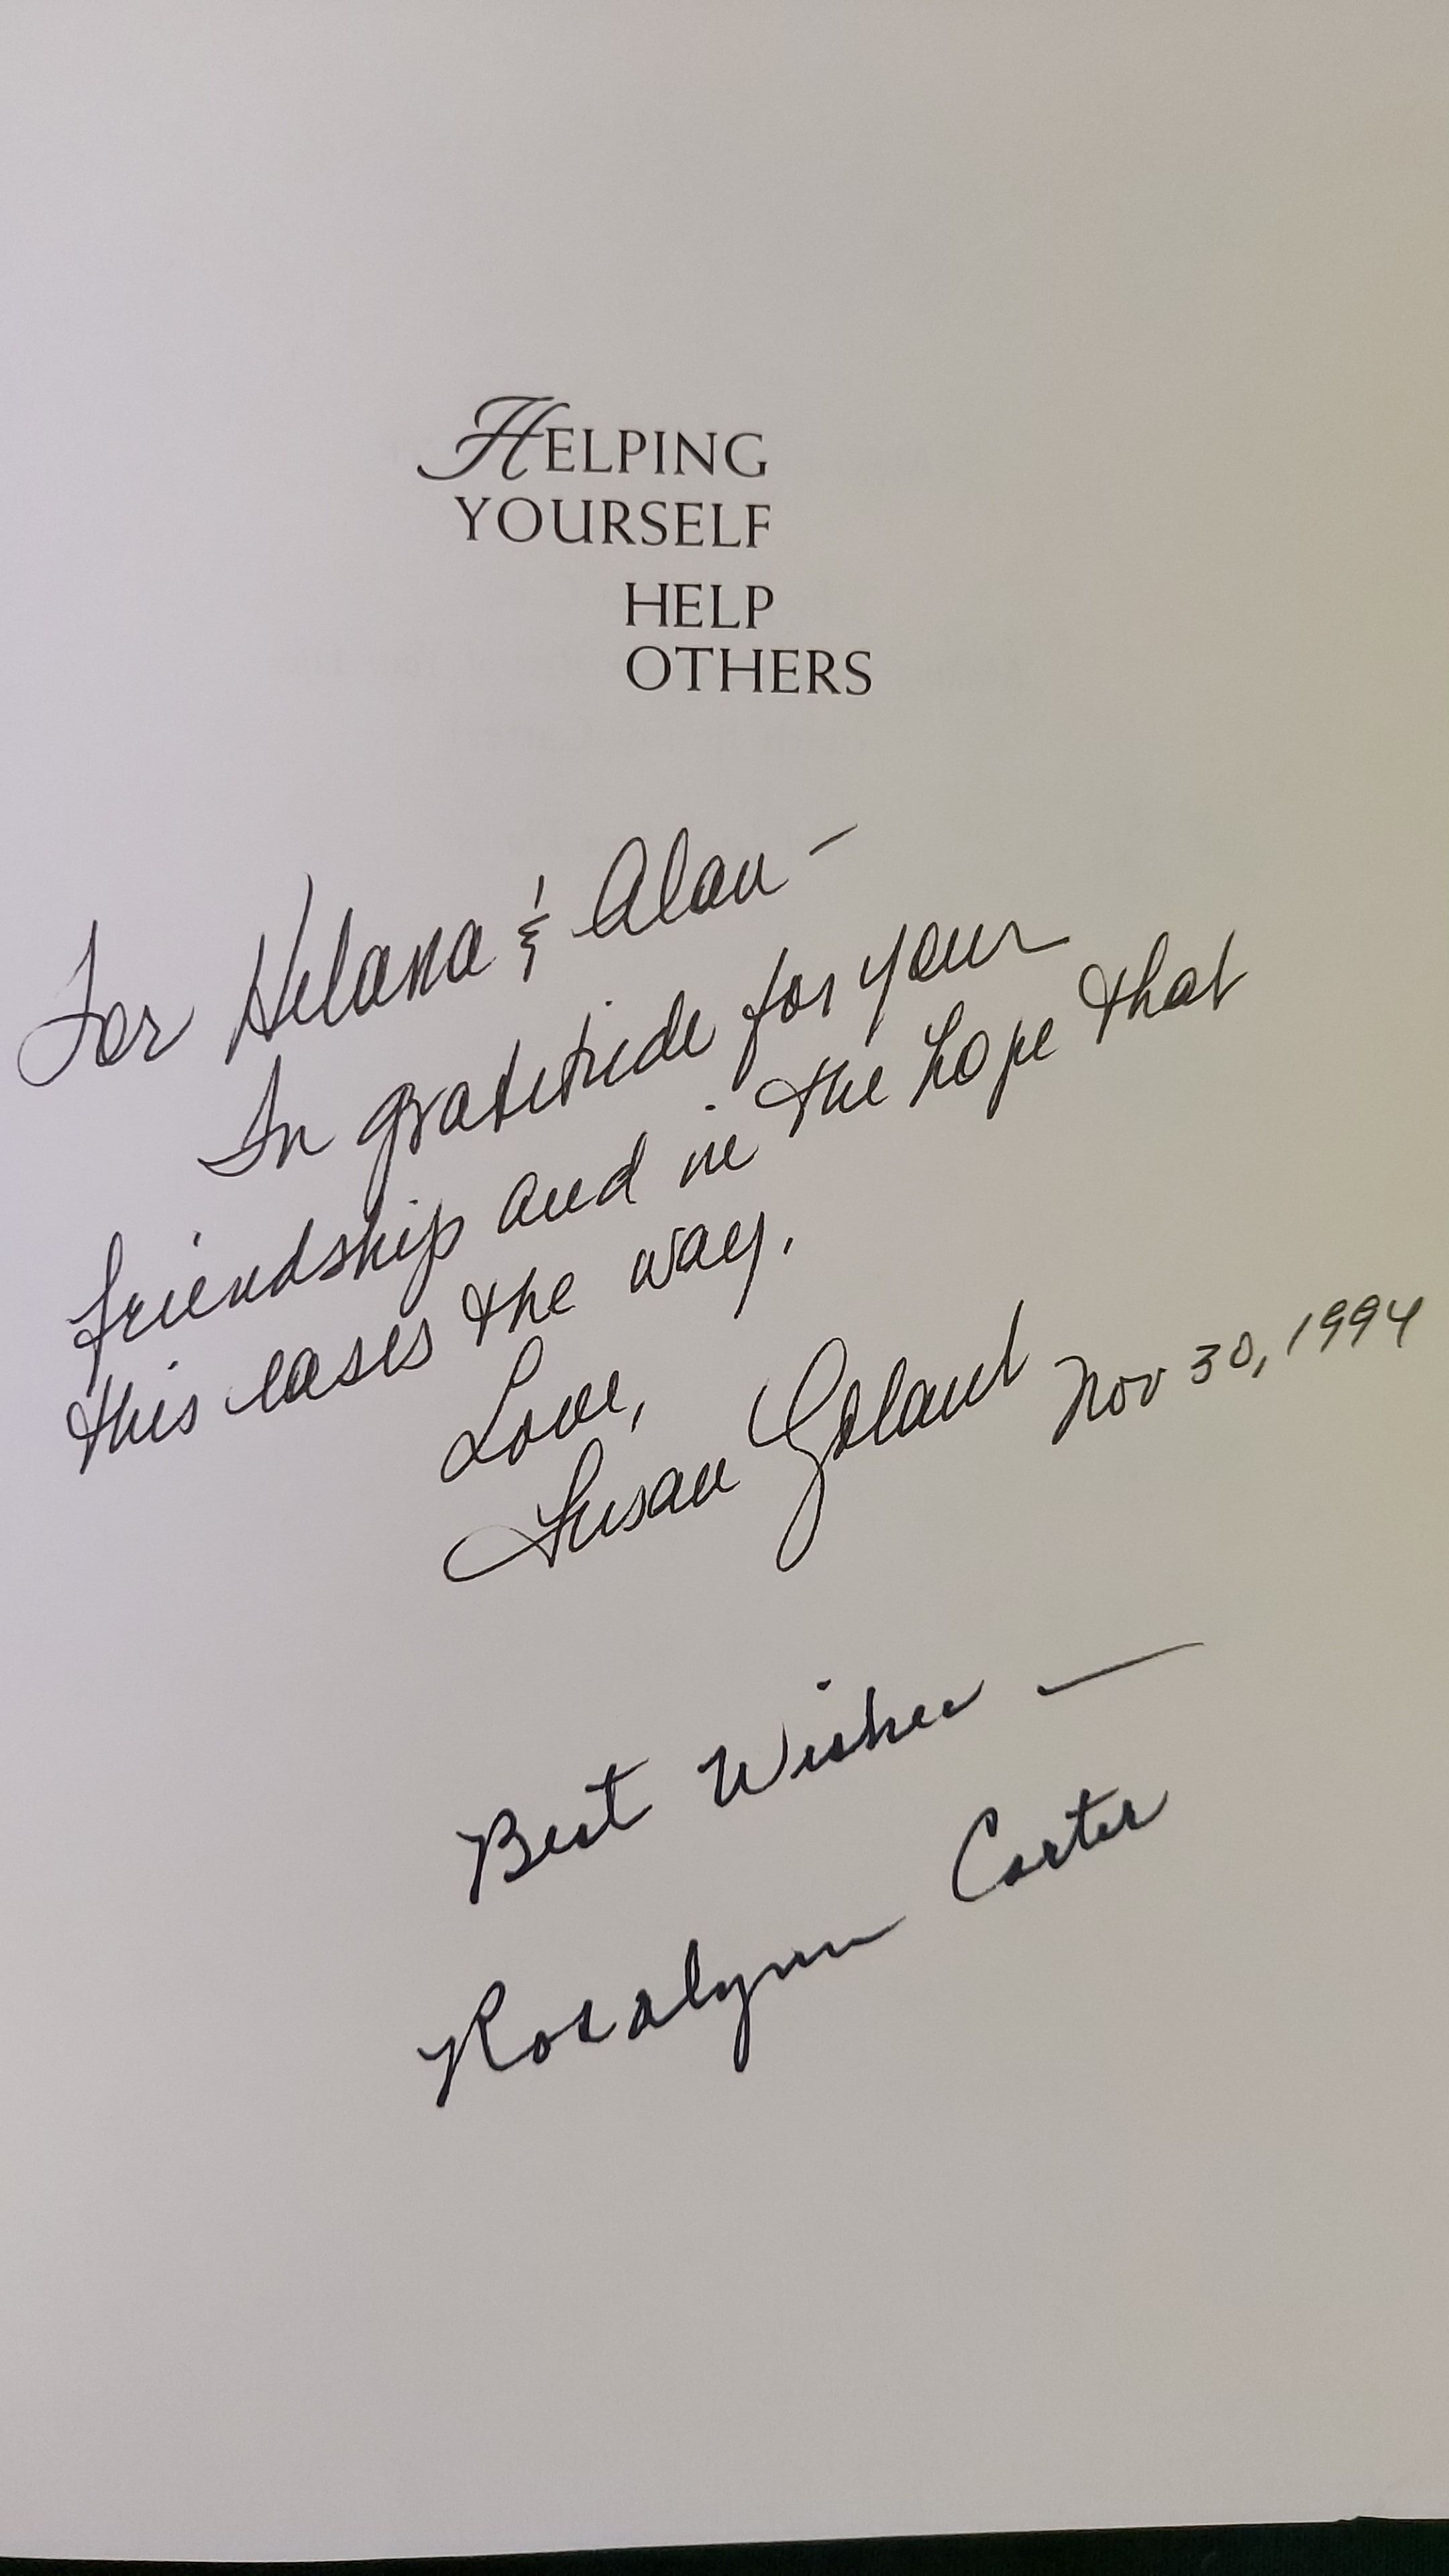 HELPING
YOURSELF
HELP
OTHERS
For Helana & Alan –
In gratitude for your
friendship and in the hope that
this eases the way.
Love,
Susan Golant Nov 30, 1994
Best Wishes —
Rosalynn Carter